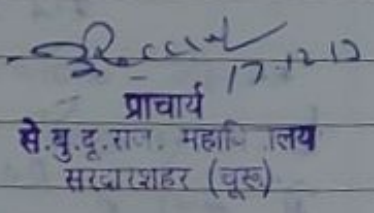 17.12.12
प्राचार्य
से.बु.दू.राज. महावि लय
सरदारशहर (चूरू)